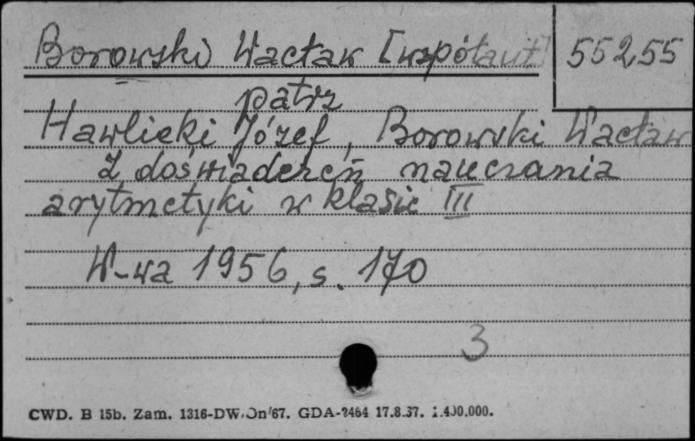 Borowski Wacław [współaut] 55255
patrz
Hawlicki Józef, Borowski Wacław
Z doświadczeń nauczania
arytmetyki w klasie III
W-wa 1956, s. 170
3
CWD. B 15b. Zam. 1316-DW/On/67. GDA-2464 17.8.37. 1.400.000.